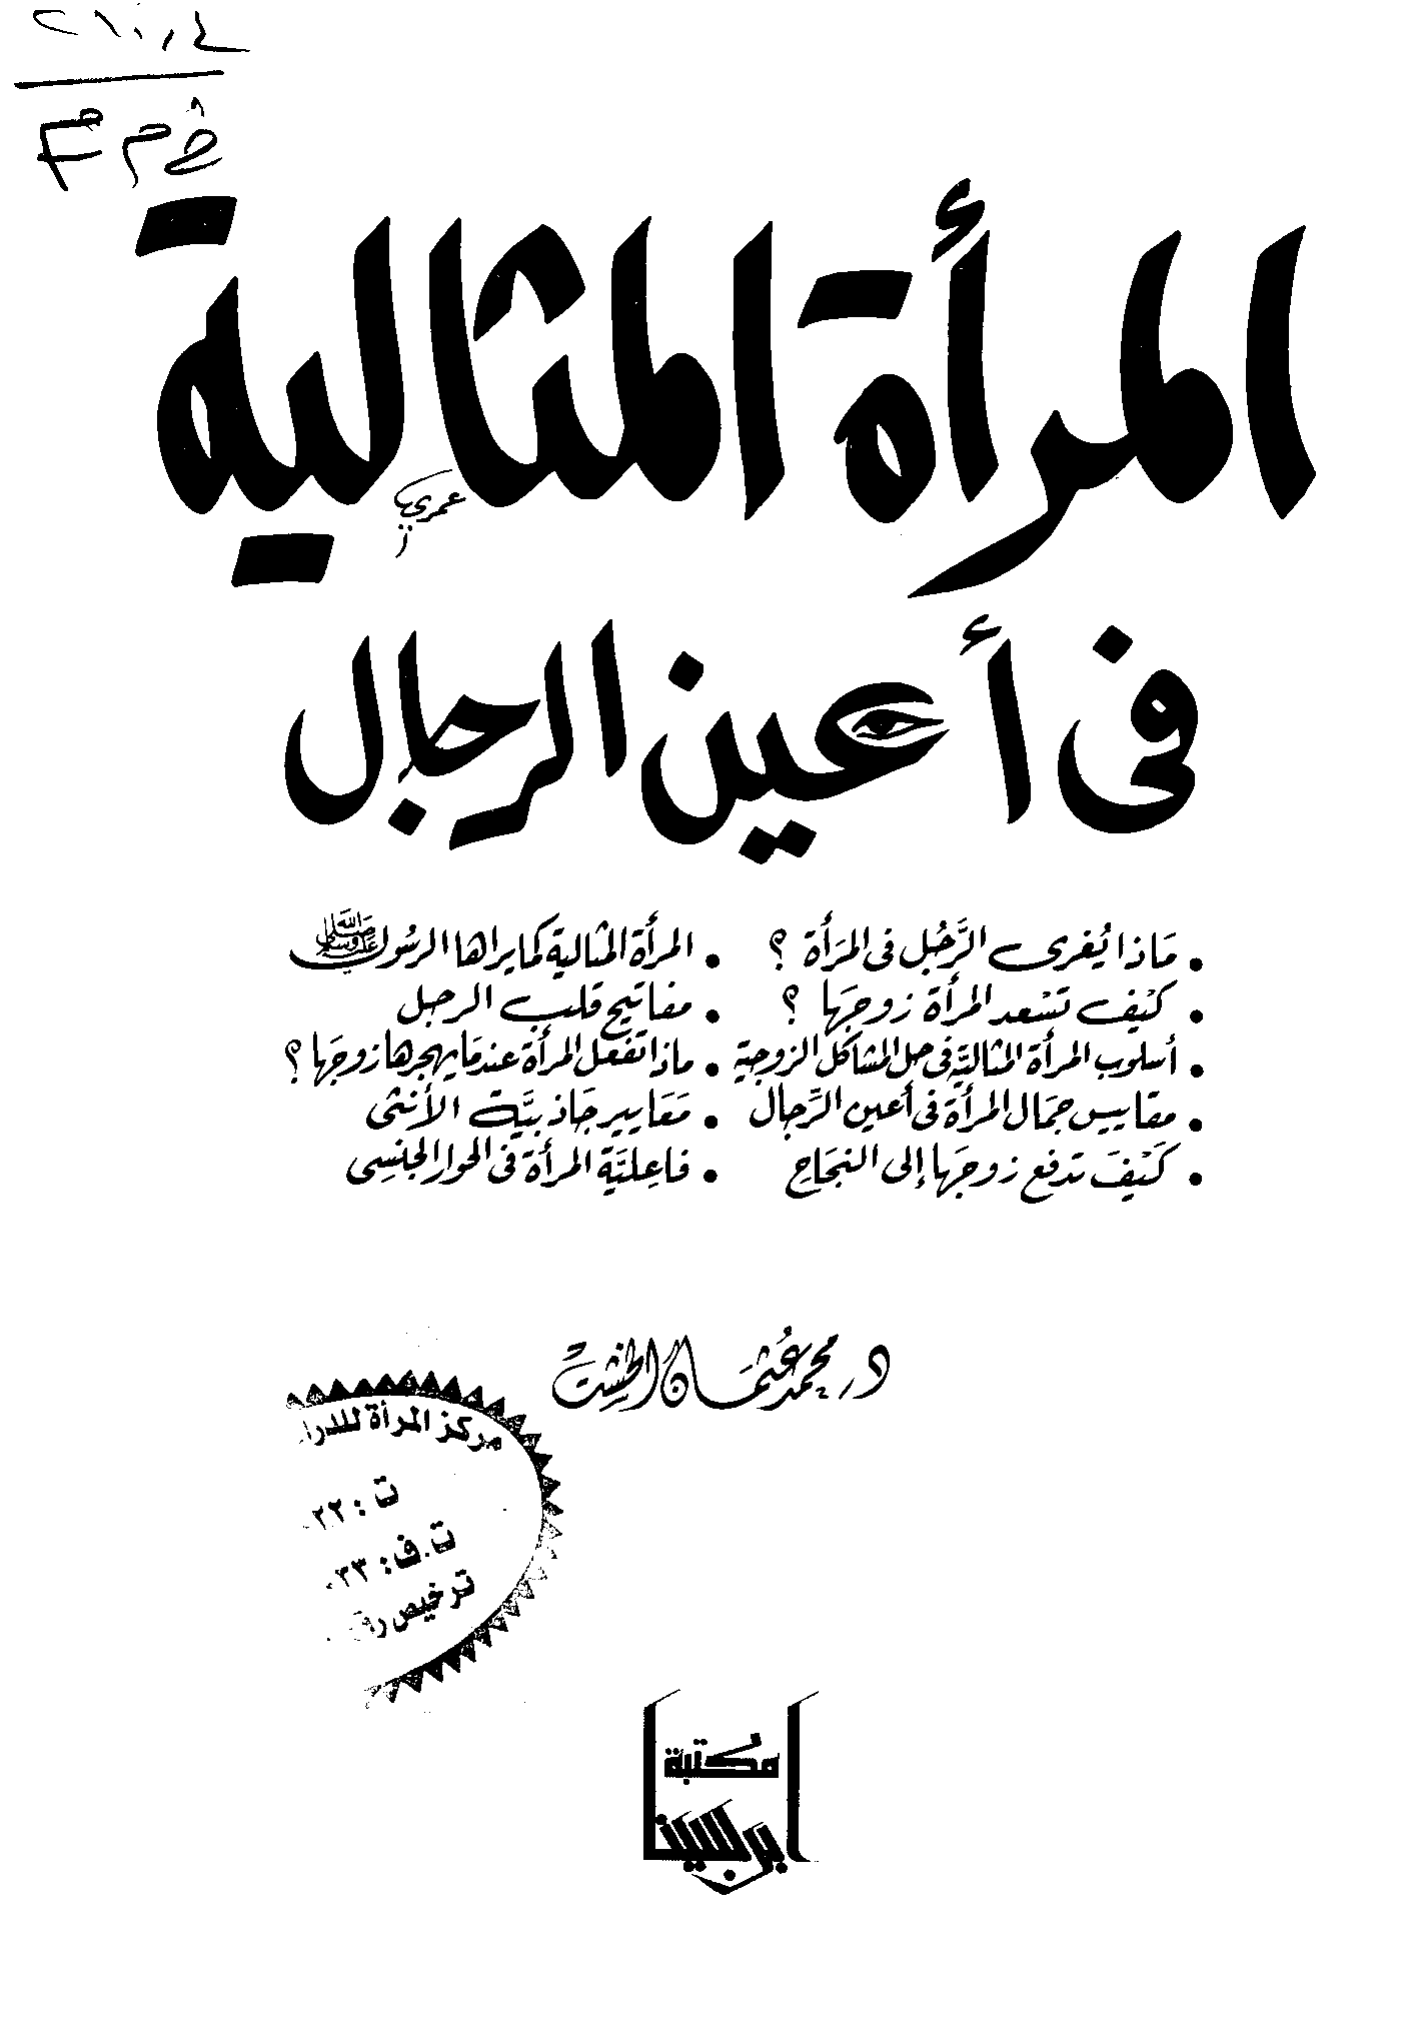 المرأة المثالية
فى أعين الرجال
• مَاذا يُغرى الرَّجُل فى المرَأة ؟
• المرأة المثالية كما يراها الرسُول ﷺ
• كيْف تسْعد المرأة زوجهَا ؟
• مفاتيح قلب الرجل
• أسلوب المرأة المثاليَّة فى حل المشاكل الزوجية
• ماذا تفعل المرأة عندمَا يهجرها زوجهَا ؟
• مقاييس جمَال المرأة فى أعين الرِّجال
• مَعَايير جَاذبيَّة الأنثى
• كَيْفَ تدفع زوجهَا إلى النجَاح
• فاعِليَّة المرأة فى الحوار الجنسِى
د. محمد عُثمَان الخشت
مركز المرأة للدرا
ت : ٢٢
ت.ف: ٣٣
ترخيص رق
مكتبة
ابن سينا